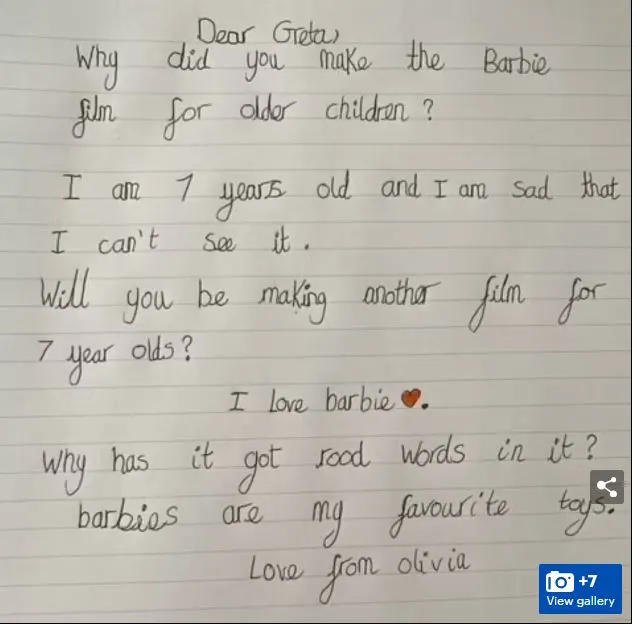 Dear Greta,
Why did you make the Barbie
film for older children?
I am 7 years old and I am sad that
I can't see it.
Will you be making another film for
7 year olds?
I love barbie ❤.
Why has it got rood words in it?
barbies are my favourite toys.
Love from olivia
+7
View gallery